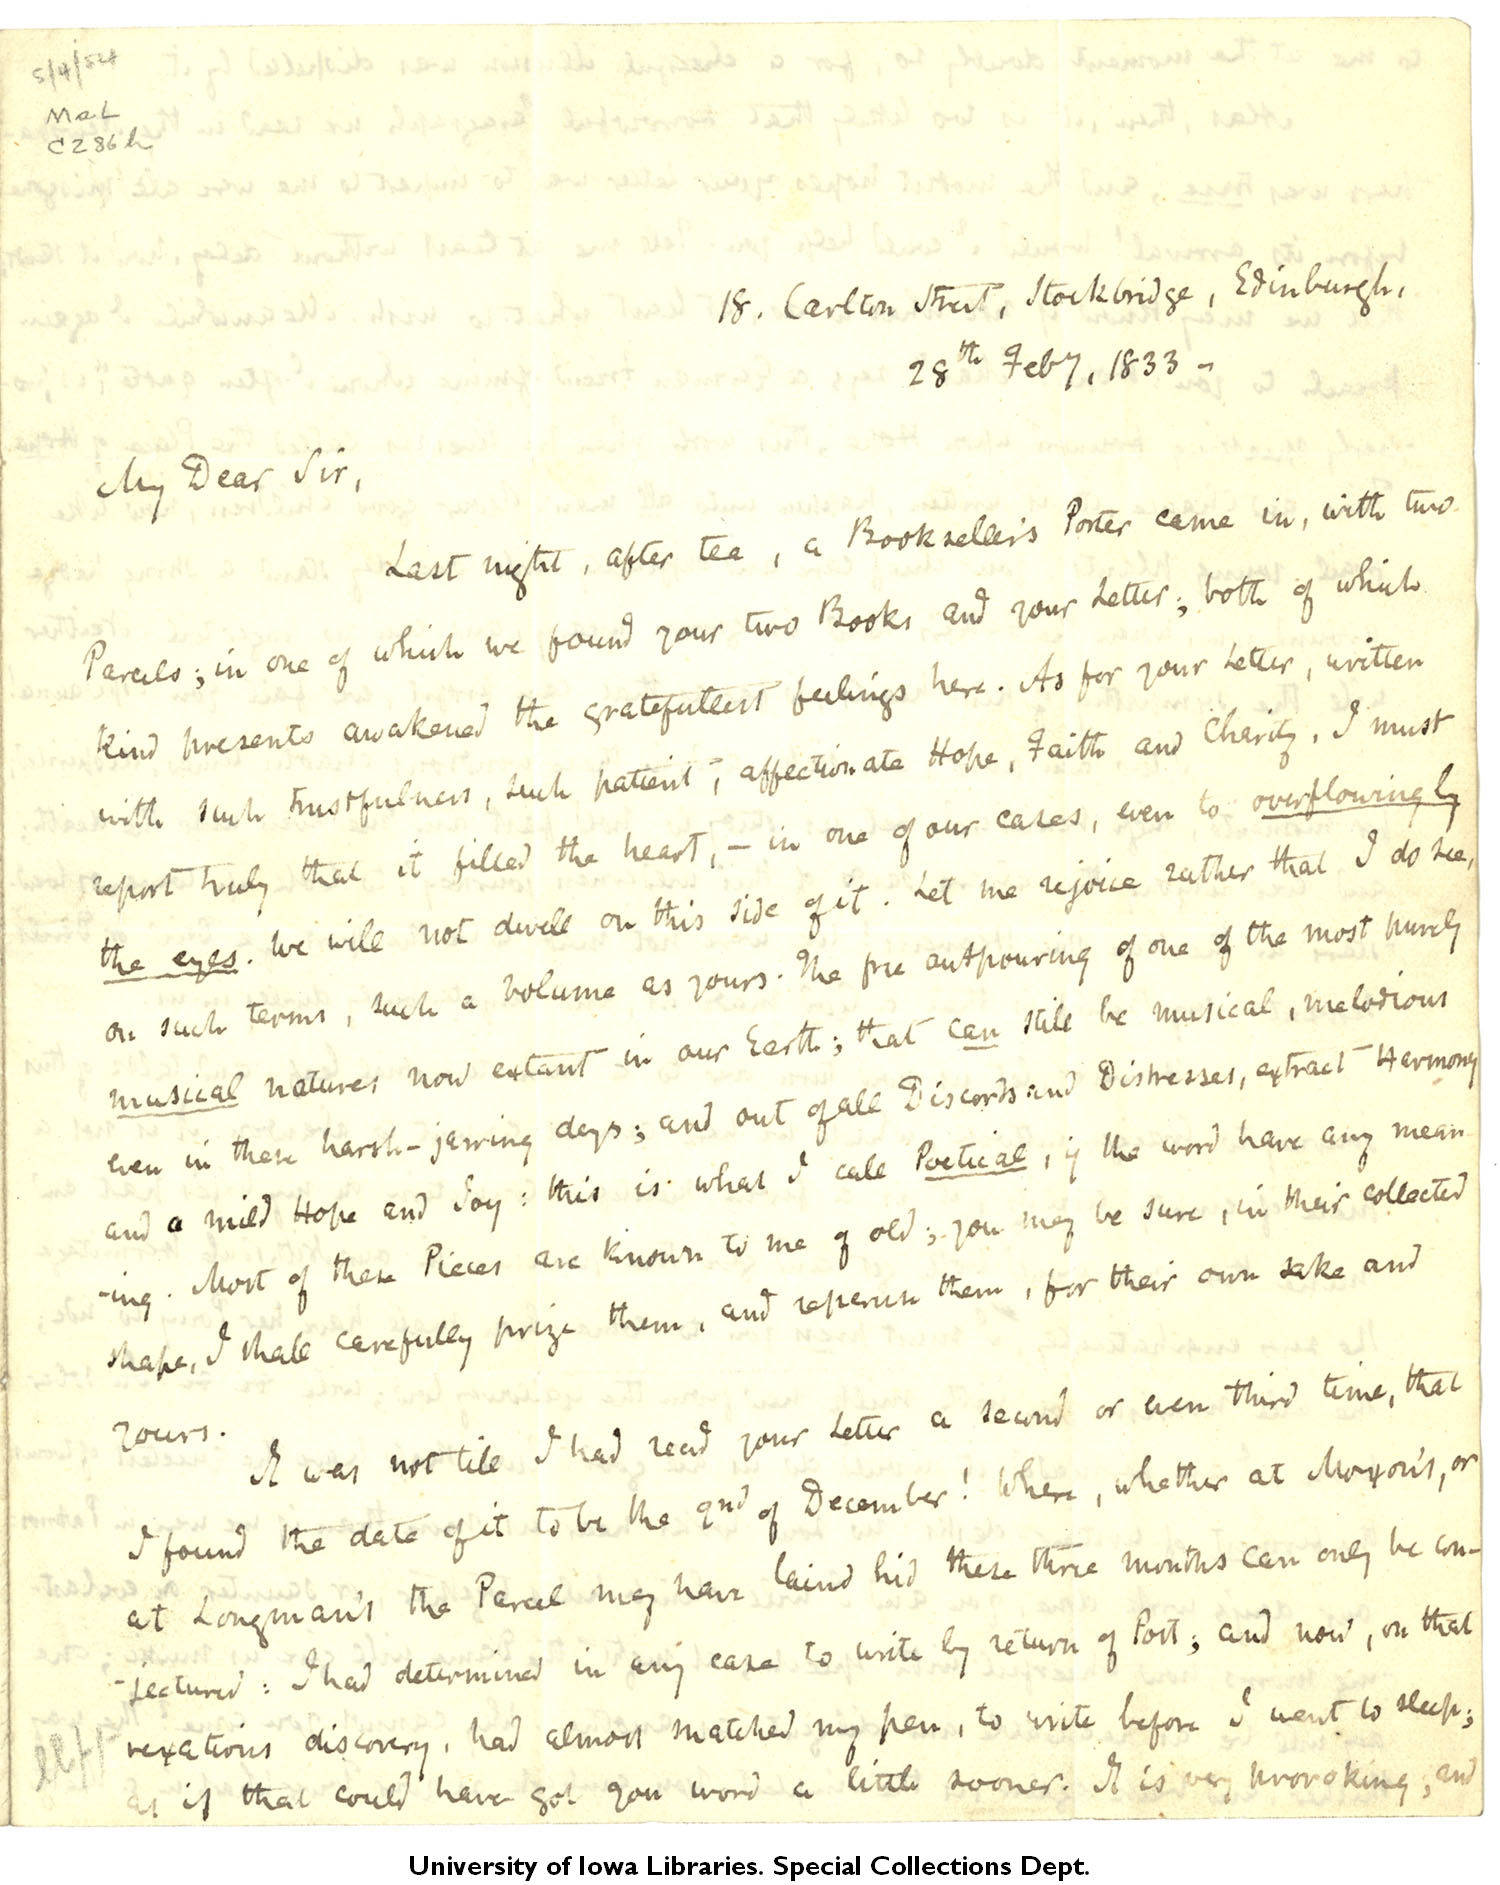 5/4/54
MsL
C286h
18. Carlton Street, Stockbridge, Edinburgh,
28th Feby, 1833 -
My Dear Sir,
Last night, after tea, a Bookseller's Porter came in, with two
Parcels; in one of which we found your two Books and your Letter; both of which
kind presents awakened the gratefullest feelings here. As for your Letter, written
with such trustfulness, such patient, affectionate Hope, Faith and Charity, I must
report truly that it filled the heart, — in one of our cases, even to overflowing by
the eyes. We will not dwell on this side of it. Let me rejoice rather that I do see,
on such terms, such a volume as yours. The free outpouring of one of the most purely
musical natures now extant in our Earth; that can still be musical, melodious
even in these harsh-jarring days; and out of all Discords and Distresses, extract Harmony
and a mild Hope and Joy: this is what I call Poetical, if the word have any mean
-ing. Most of these Pieces are known to me of old; you may be sure, in their collected
shape, I shall carefully prize them, and reperuse them, for their own sake and
yours.
It was not till I had read your Letter a second or even third time, that
I found the date of it to be the 2nd of December! Where, whether at Moxon's, or
at Longman's the Parcel may have laind hid these three months can only be con-
-jectured: I had determined in any case to write by return of Post; and now, on that
vexatious discovery, had almost snatched my pen, to write before I went to sleep;
as if that could have got you word a little sooner. It is very provoking; and
University of Iowa Libraries. Special Collections Dept.